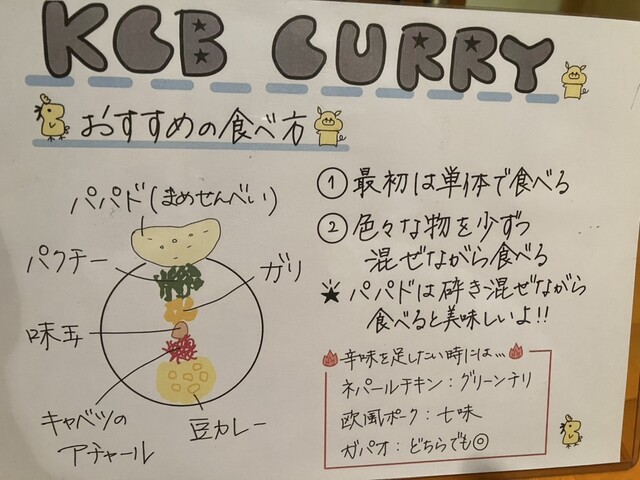 KCB CURRY
おすすめの食べ方
パパド(まめせんべい)
パクチー
ガリ
味玉
キャベツの
アチャール
豆カレー
① 最初は単体で食べる
② 色々な物を少ずつ
混ぜながら食べる
★ パパドは砕き混ぜながら
食べると美味しいよ!!
辛味を足したい時には…
ネパールチキン：グリーンチリ
欧風ポーク：七味
ガパオ：どちらでも◎